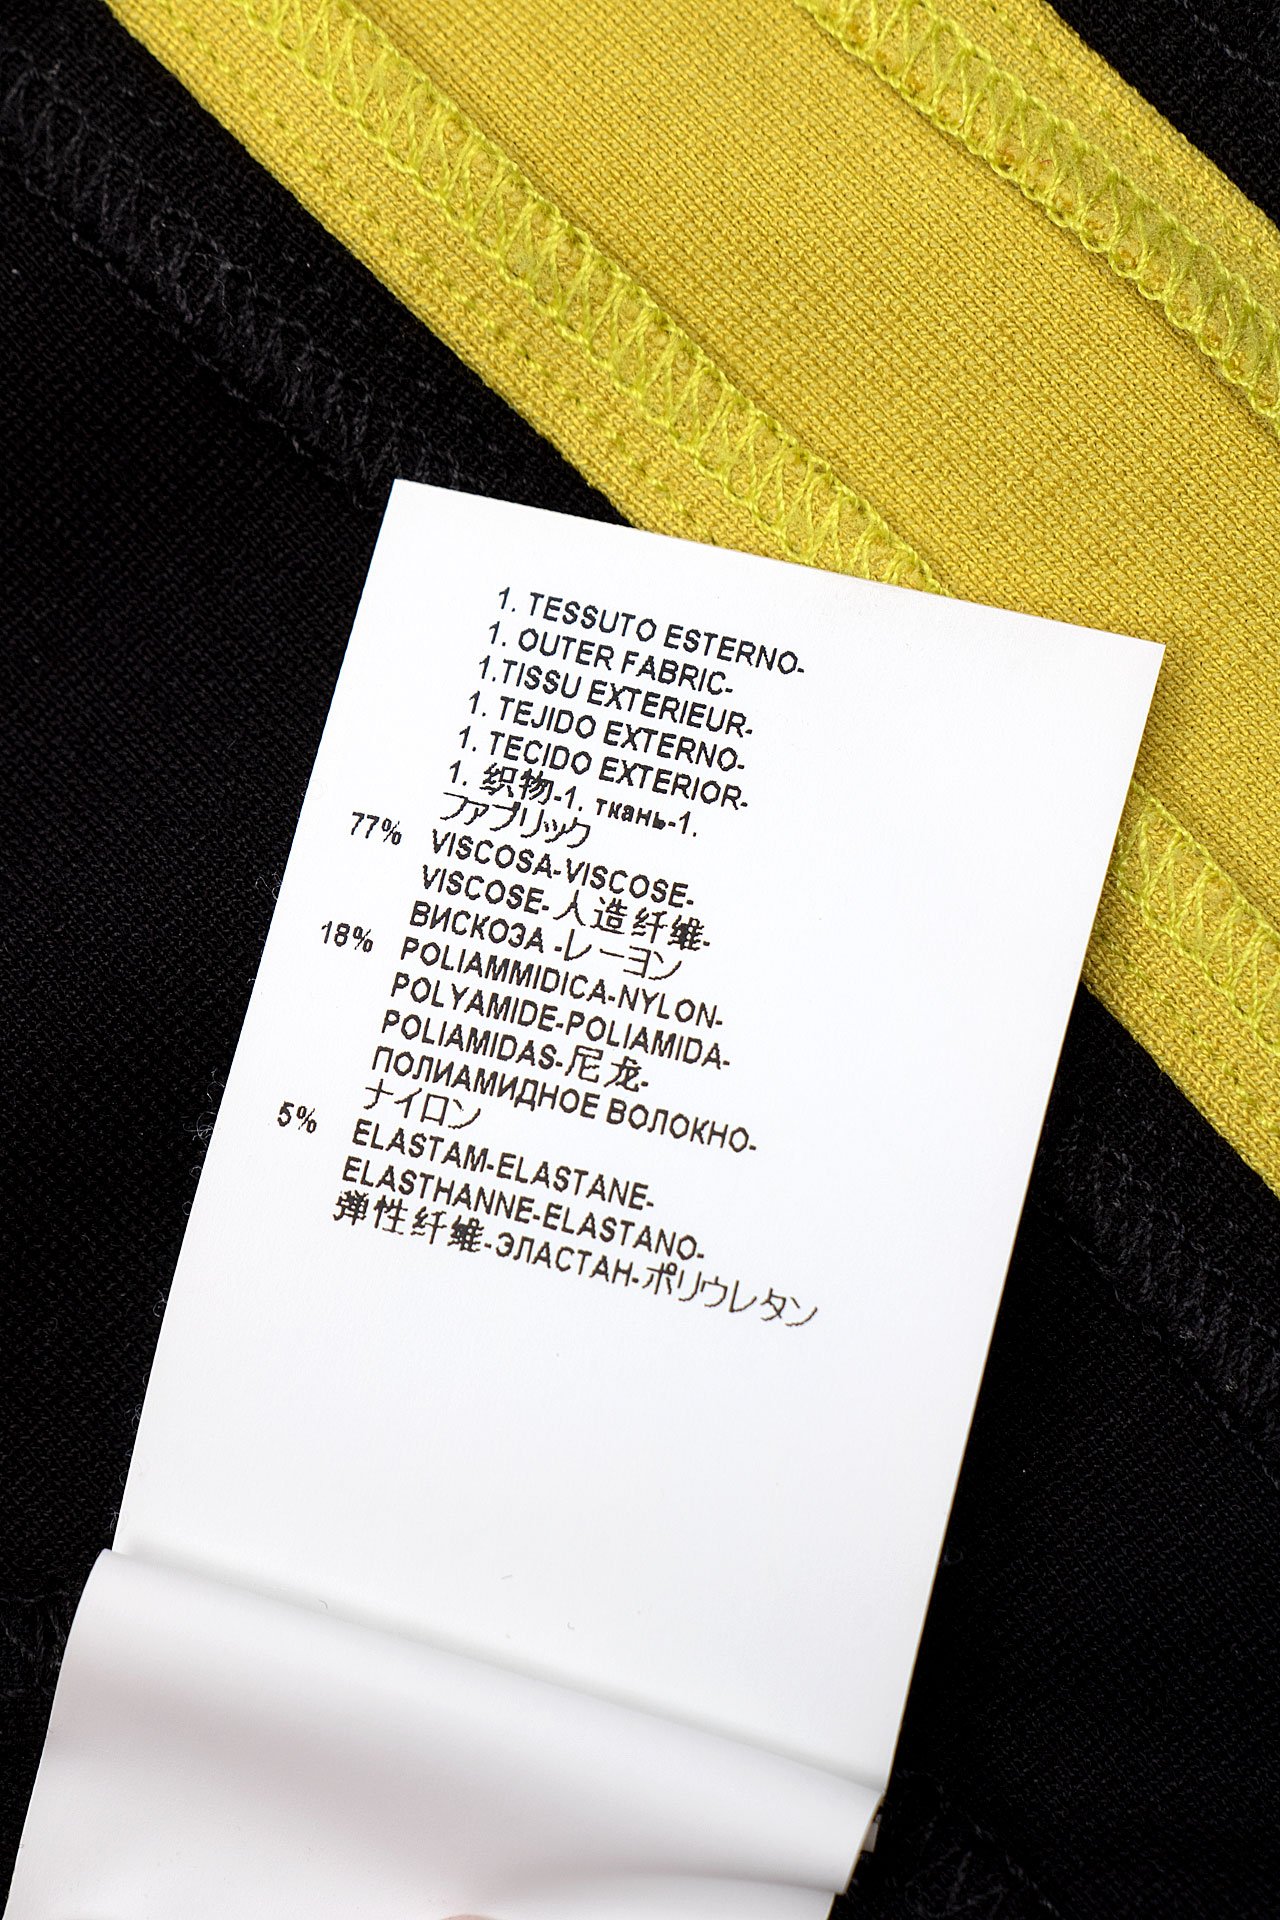 1. TESSUTO ESTERNO-
1. OUTER FABRIC-
1.TISSU EXTERIEUR-
1. TEJIDO EXTERNO-
1. TECIDO EXTERIOR-
1. 织物-1. ткань-1.
ファブリック
77% VISCOSA-VISCOSE-
VISCOSE-人造纤维-
ВИСКОЗА -レーヨン
18% POLIAMMIDICA-NYLON-
POLYAMIDE-POLIAMIDA-
POLIAMIDAS-尼龙-
ПОЛИАМИДНОЕ ВОЛОКНО-
ナイロン
5% ELASTAM-ELASTANE-
ELASTHANNE-ELASTANO-
弹性纤维-ЭЛАСТАН-ポリウレタン